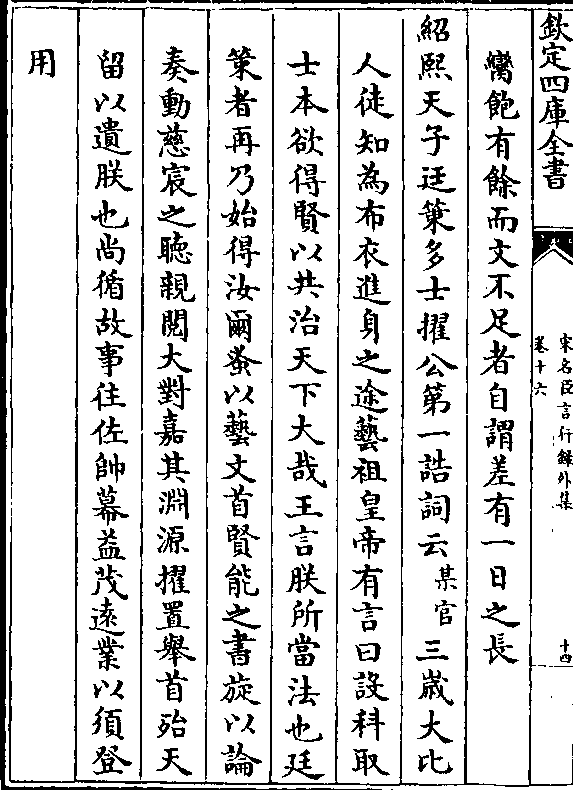 欽定四庫全書
宋名臣言行錄外集
卷十六
十四
鸞飽有餘而文不足者自謂差有一日之長
紹熙天子廷䇿多士擢公第一誥詞云某官三歲大比
人徒知為布衣進身之途藝祖皇帝有言曰設科取
士本欲得賢以共治天下大哉王言朕所當法也廷
䇿者再乃始得汝爾蚤以藝文首賢能之書旋以論
奏動慈宸之聽親閱大對嘉其淵源擢置舉首殆天
留以遺朕也尚循故事往佐帥幕益茂遠業以須登
用